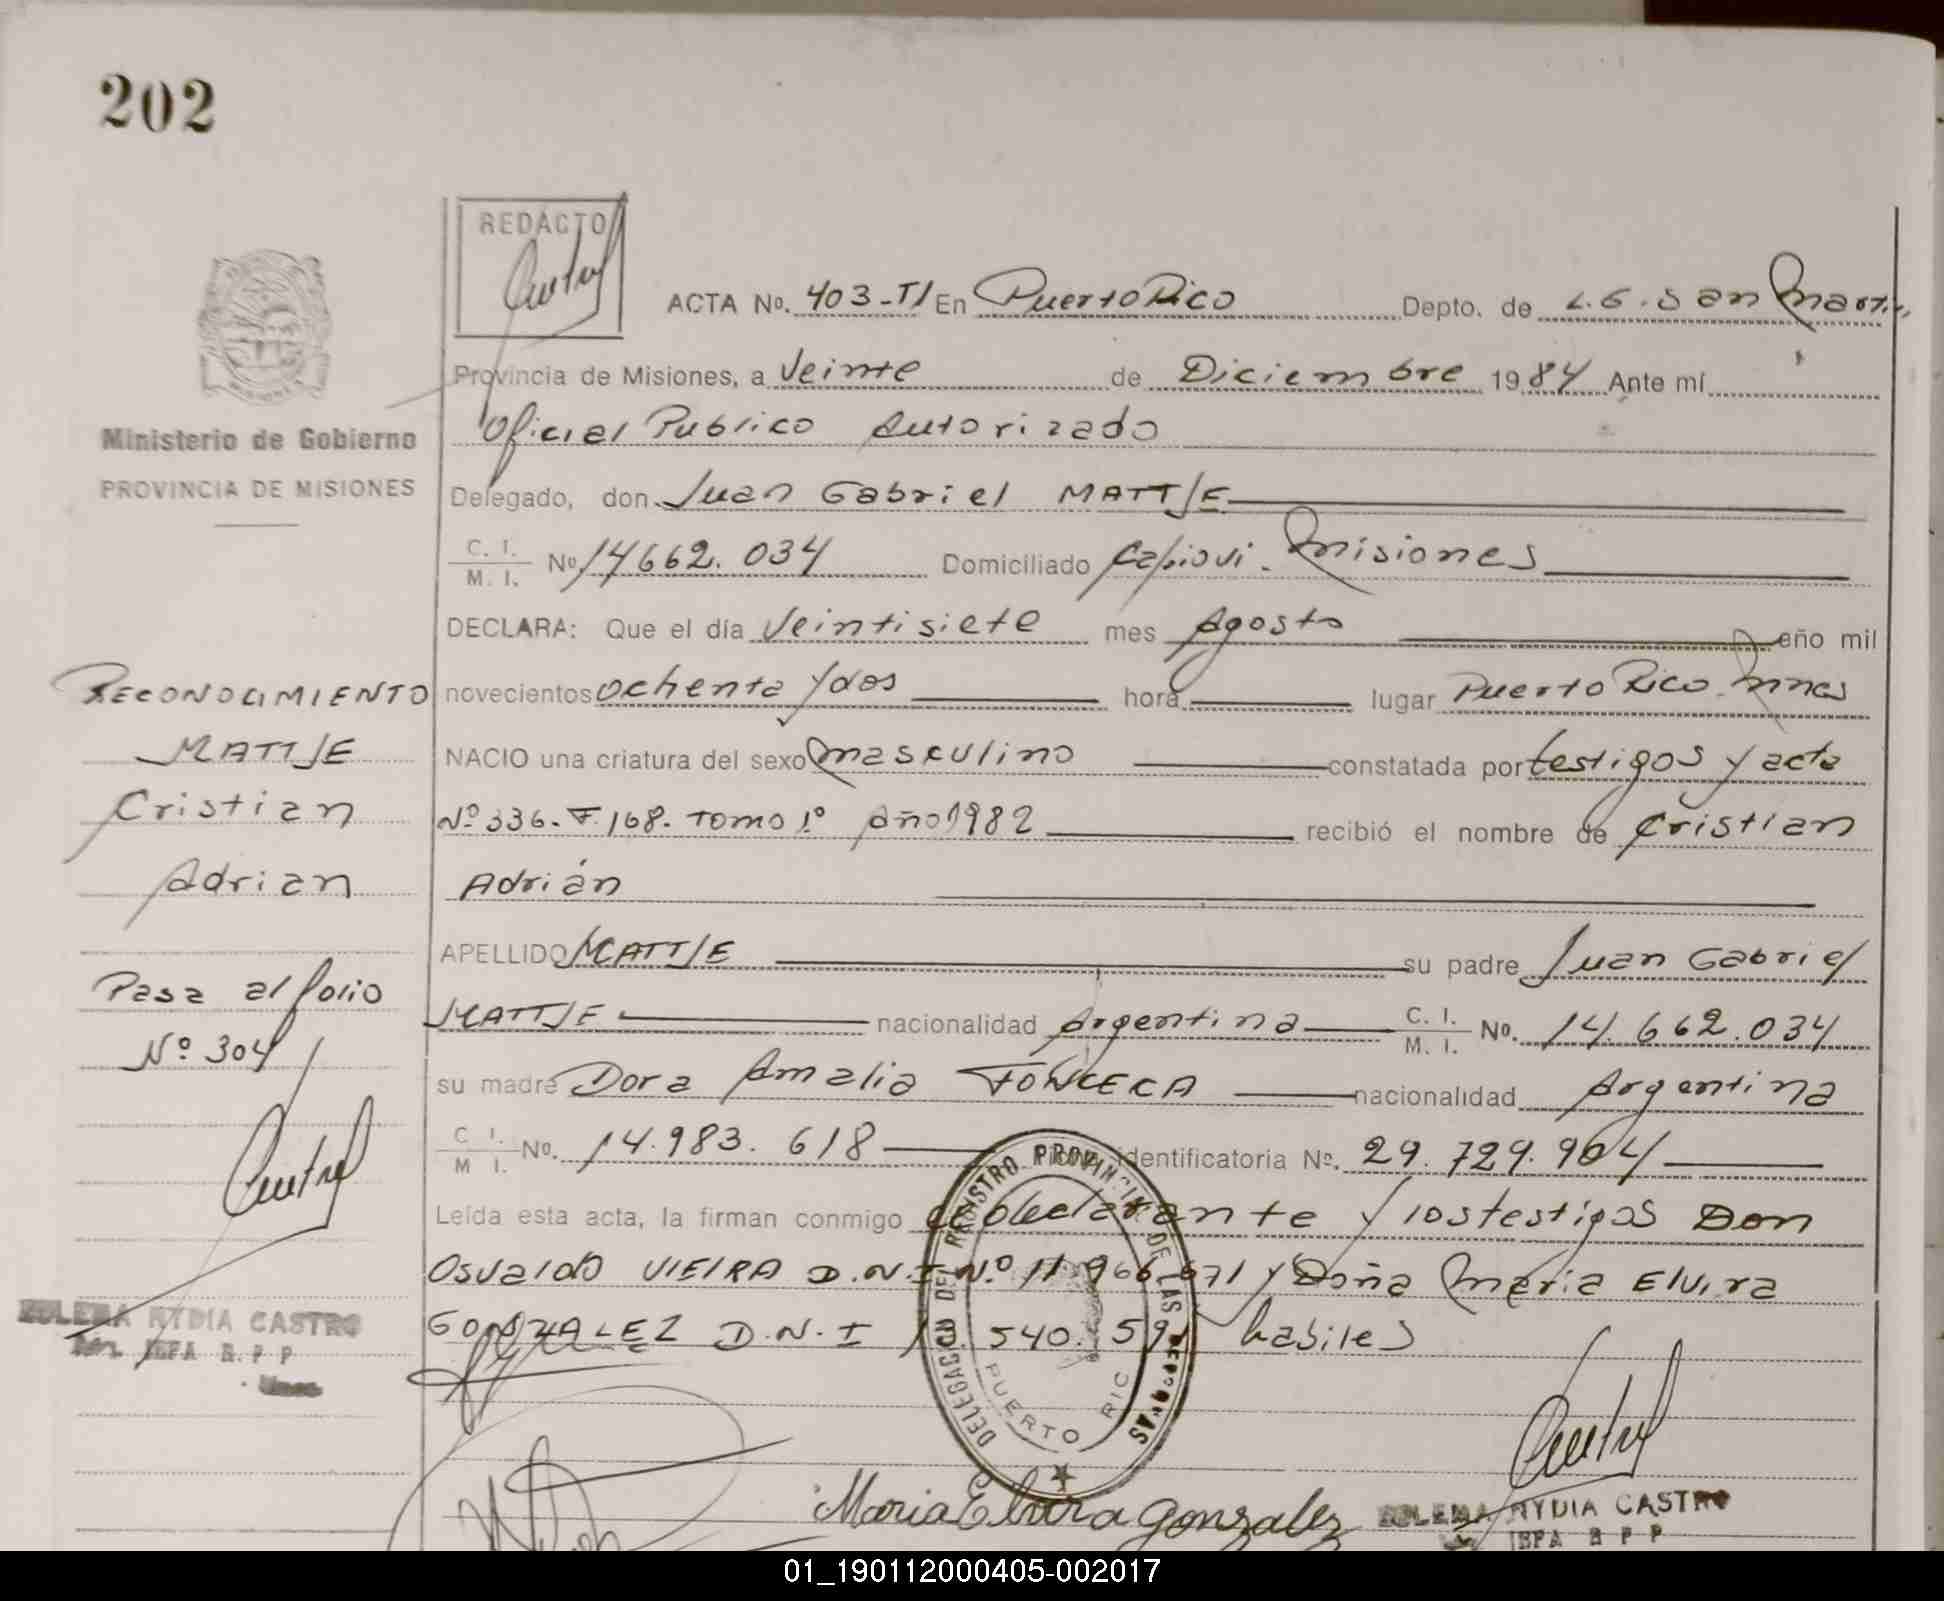 202
REDACTO
ACTA No. 403-TI En Puerto Rico Depto. de L.G. San Martin
Provincia de Misiones, a Veinte de Diciembre 1984 Ante mí
Oficial Publico Autorizado
Ministerio de Gobierno
PROVINCIA DE MISIONES
Delegado, don Juan Gabriel MATTJE
C. I. M. I. No 14662.034 Domiciliado Capiovi. Misiones
DECLARA: Que el día Veintisiete mes Agosto año mil
novecientos ochenta y dos hora lugar Puerto Rico. Mnes
NACIO una criatura del sexo masculino constatada por testigos y acta
Nº 336. F. 168. Tomo 1º Año 1982 recibió el nombre de Cristian
Adrián
APELLIDO MATTJE su padre Juan Gabriel
MATTJE nacionalidad Argentina C. I. M. I. No. 14.662.034
su madre Dora Amalia FONCECA nacionalidad Argentina
C. I. M. I. No. 14.983.618 identificatoria No. 29.729.904
Leída esta acta, la firman conmigo el declarante y los testigos Don
Osvaldo VIEIRA D.N.I Nº 11.966.671 y Doña Maria Elvira
GONZALEZ D.N.I 540. habiles
RECONOCIMIENTO
MATTJE
Cristian
Adrian
Pasa al folio
Nº 304
ZULEMA NYDIA CASTRO
JEFA R. P. P
Mnes
DELEGACION DEL REGISTRO PROVINCIAL DE LAS PERSONAS
PUERTO RICO
Maria Elvira Gonzalez
ZULEMA NYDIA CASTRO
JEFA R P P
01_190112000405-002017